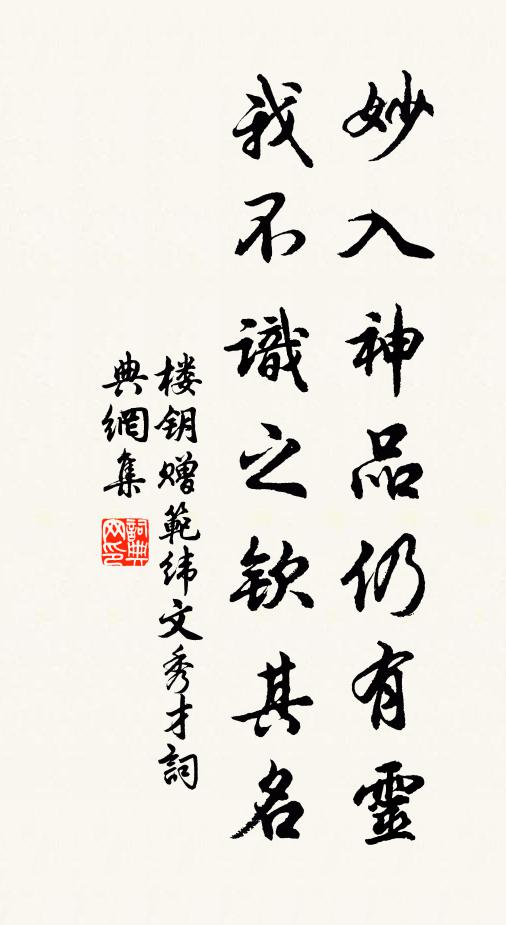 妙入神品仍有靈
我不識之欽其名
楼钥赠範緯文秀才詞
典網集
詞典
网印